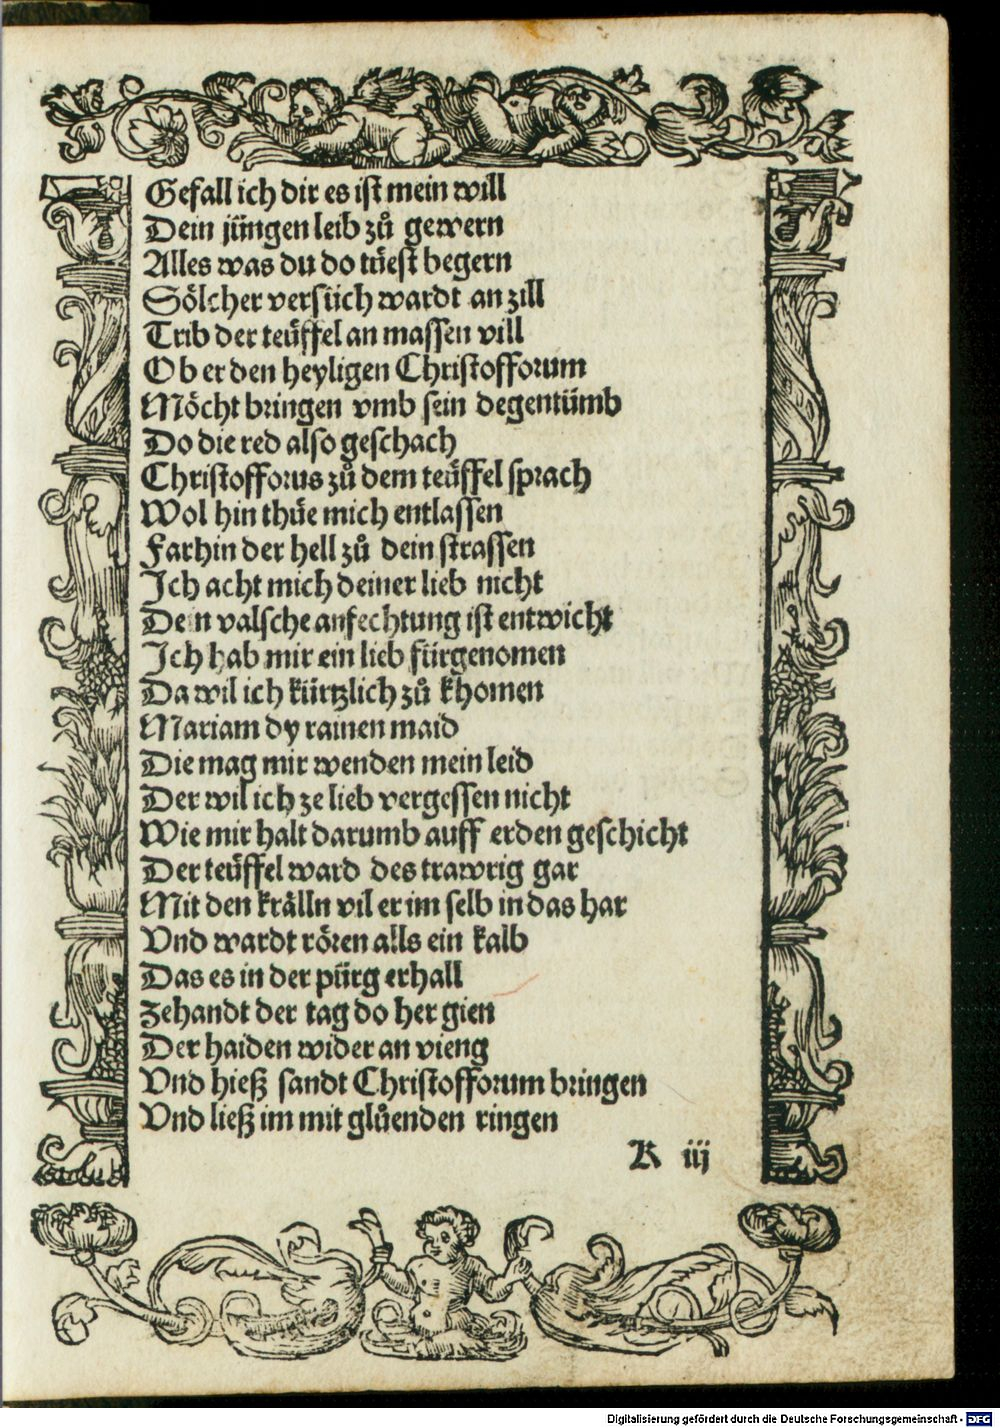 Gefall ich dir es ist mein will
Dein jüngen leib zů gewern
Alles was du do tüest begern
Sölcher versüch wardt an zill
Trib der teüffel an massen vill
Ob er den heyligen Christofforum
Möcht bringen vmb sein degentümb
Do die red also geschach
Christofforus zů dem teüffel sprach
Wol hin thüe mich entlassen
Farhin der hell zů dein strassen
Ich acht mich deiner lieb nicht
Dein valsche anfechtung ist entwicht
Ich hab mir ein lieb fürgenomen
Da wil ich kürtzlich zů khomen
Mariam dy rainen maid
Die mag mir wenden mein leid
Der wil ich ze lieb vergessen nicht
Wie mir halt darumb auff erden geschicht
Der teüffel ward des trawrig gar
Mit den krälln vil er im selb in das har
Vnd wardt rören alls ein kalb
Das es in der pürg erhall
Zehandt der tag do her gien
Der haiden wider an vieng
Vnd hieß sandt Christofforum bringen
Vnd ließ im mit glůenden ringen
K iij
Digitalisierung gefördert durch die Deutsche Forschungsgemeinschaft - DFG